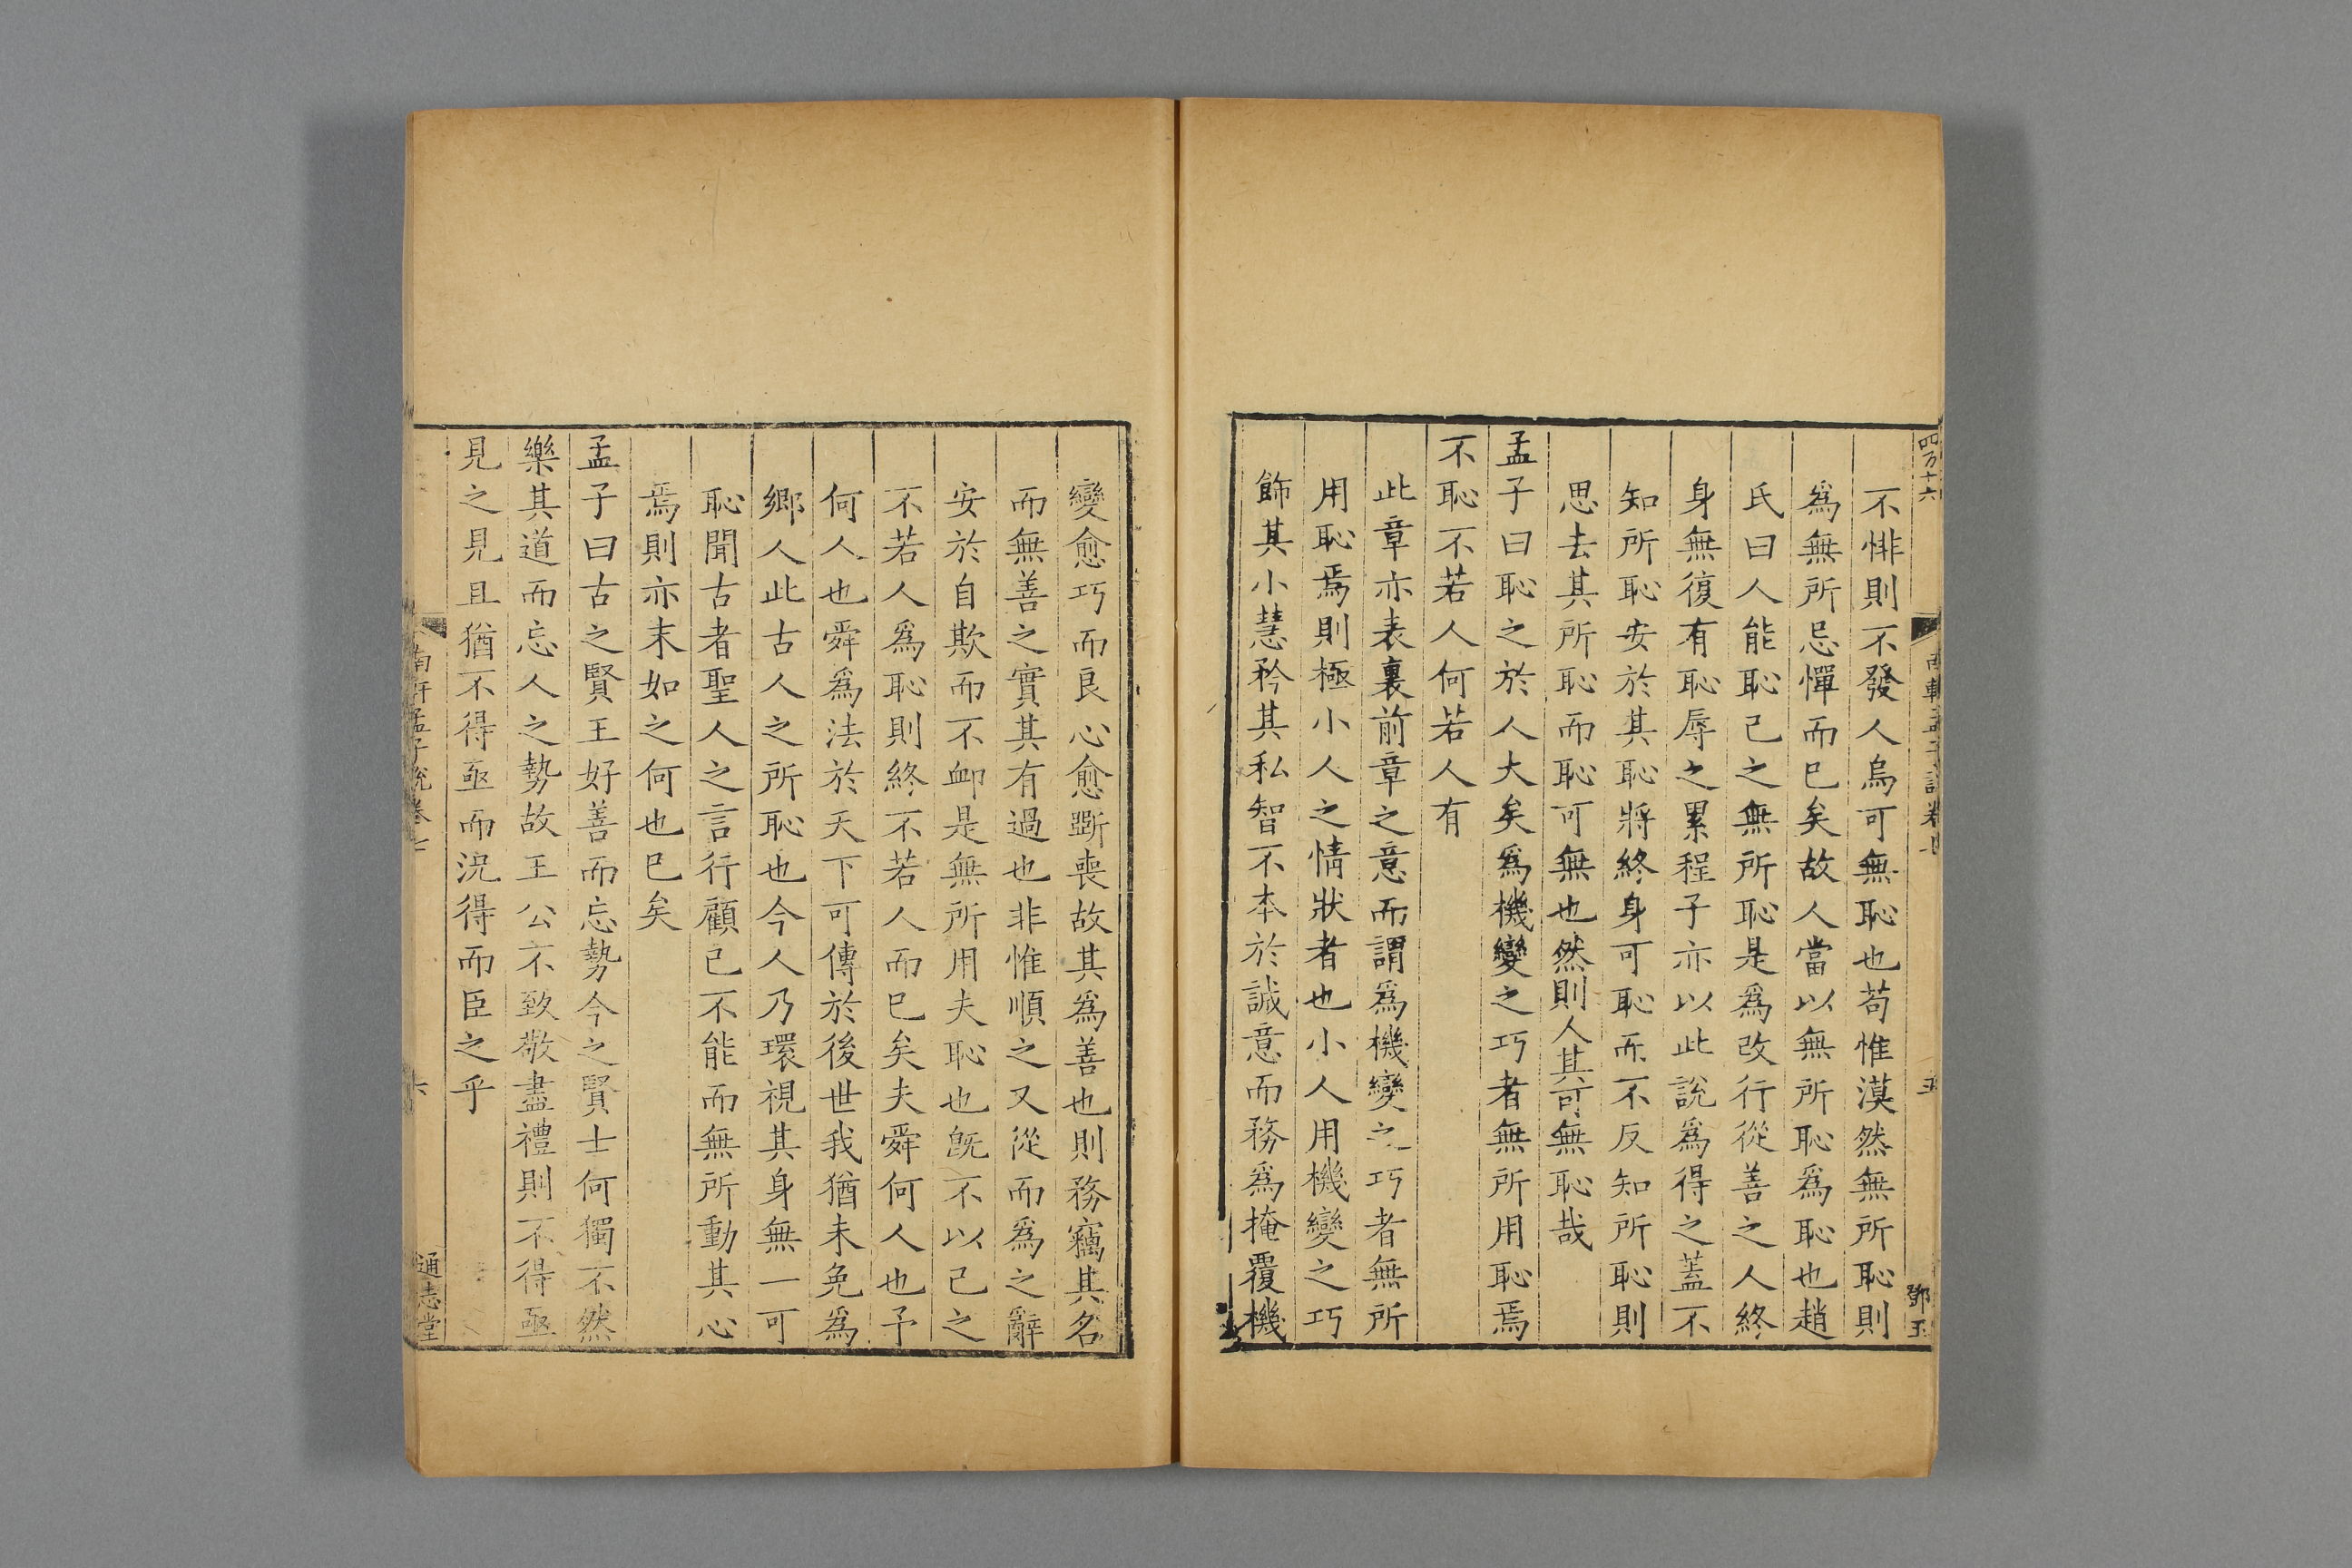 四万十六
不悱則不發人烏可無恥也苟惟漠然無所恥則
爲無所忌憚而已矣故人當以無所恥爲恥也趙
氏曰人能恥己之無所恥是爲改行從善之人終
身無復有恥辱之累程子亦以此說爲得之蓋不
知所恥安於其恥將終身可恥而不反知所恥則
思去其所恥而恥可無也然則人其可無恥哉
孟子曰恥之於人大矣爲機變之巧者無所用恥焉
不恥不若人何若人有
此章亦表裏前章之意而謂爲機變之巧者無所
用恥焉則極小人之情狀者也小人用機變之巧
飾其小慧矜其私智不本於誠意而務爲掩覆機
南軒孟子說卷七
五
鄧玉
變愈巧而良心愈斲喪故其爲善也則務竊其名
而無善之實其有過也非惟順之又從而爲之辭
安於自欺而不卹是無所用夫恥也旣不以己之
不若人爲恥則終不若人而已矣夫舜何人也予
何人也舜爲法於天下可傳於後世我猶未免爲
鄉人此古人之所恥也今人乃環視其身無一可
恥聞古者聖人之言行顧己不能而無所動其心
焉則亦末如之何也已矣
孟子曰古之賢王好善而忘勢今之賢士何獨不然
樂其道而忘人之勢故王公不致敬盡禮則不得亟
見之見且猶不得亟而況得而臣之乎
南軒孟子說卷七
六
通志堂